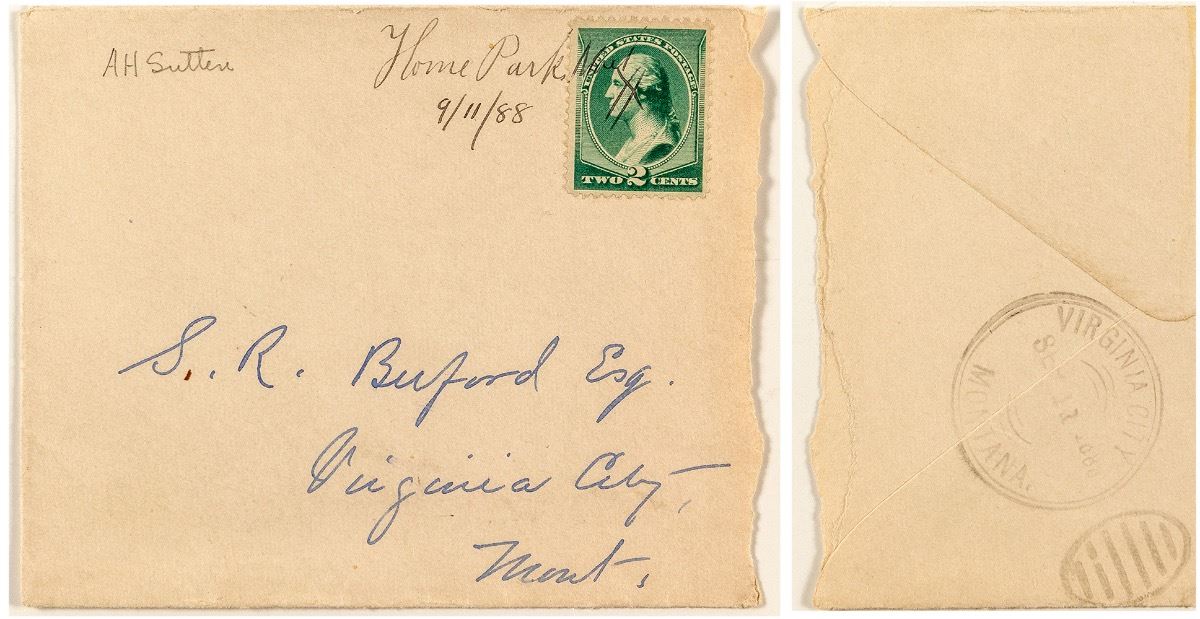 AH Suttere
Home Park, Mont
9/11/88
UNITED STATES POSTAGE
TWO 2 CENTS
S. R. Buford Esq.
Virginia City,
Mont.
VIRGINIA CITY
MONTANA.